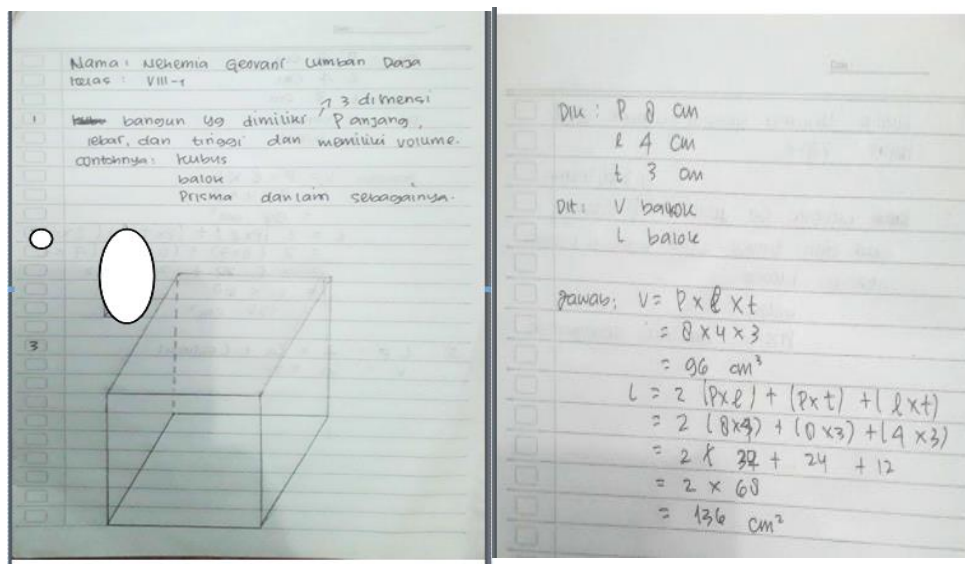 Nama : Nehemia Geovani Lumban Daja
Kelas : VIII-1
3 dimensi
1 bangun yg dimiliki Panjang,
lebar, dan tinggi dan memiliki volume.
contohnya : kubus
balok
Prisma dan lain sebagainya.
3
Dik : P 8 cm
l 4 cm
t 3 cm
Dit : V balok
L balok
Jawab : V = P x l x t
= 8 x 4 x 3
= 96 cm³
L = 2 (P x l) + (P x t) + (l x t)
= 2 (8 x 4) + (8 x 3) + (4 x 3)
= 2 x 32 + 24 + 12
= 2 x 68
= 136 cm²